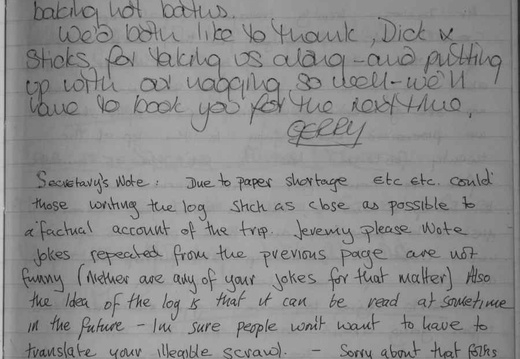 baking hot baths.
We'd both like to thank, Dick &
Sticks for taking us along - and putting
up with our nagging so well - we'll
have to book you for the next time,
GERRY
Secretary's Note: Due to paper shortage etc etc. could
those writing the log stick as close as possible to
a factual account of the trip. Jeremy please note
jokes repeated from the previous page are not
funny (Niether are any of your jokes for that matter) Also
the Idea of the log is that it can be read at sometime
in the future - Im sure people won't want to have to
translate your illegible scrawl. - Sorry about that folks